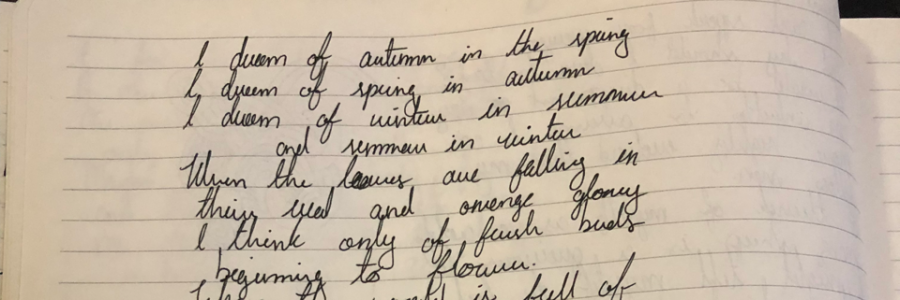 I dream of autumn in the spring
I dream of spring in autumn
I dream of winter in summer
and summer in winter
When the leaves are falling in
their red and orange glory
I think only of fresh buds
beginning to flower.
is full of